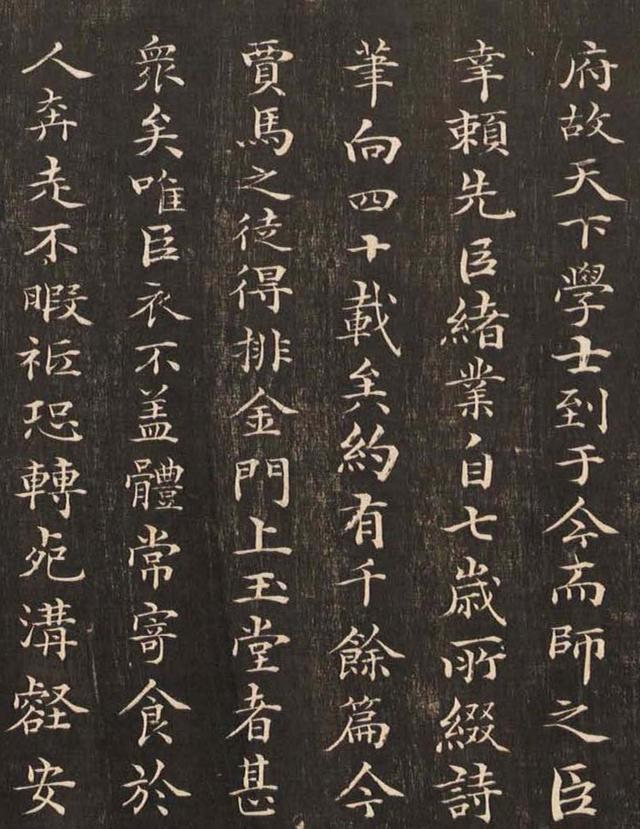 府故天下學士到于今而師之臣
幸賴先臣緒業自七歲所綴詩
筆向四十載矣約有千餘篇今
賈馬之徒得排金門上玉堂者甚
衆矣唯臣衣不盖體常寄食於
人奔走不暇祗恐轉死溝壑安